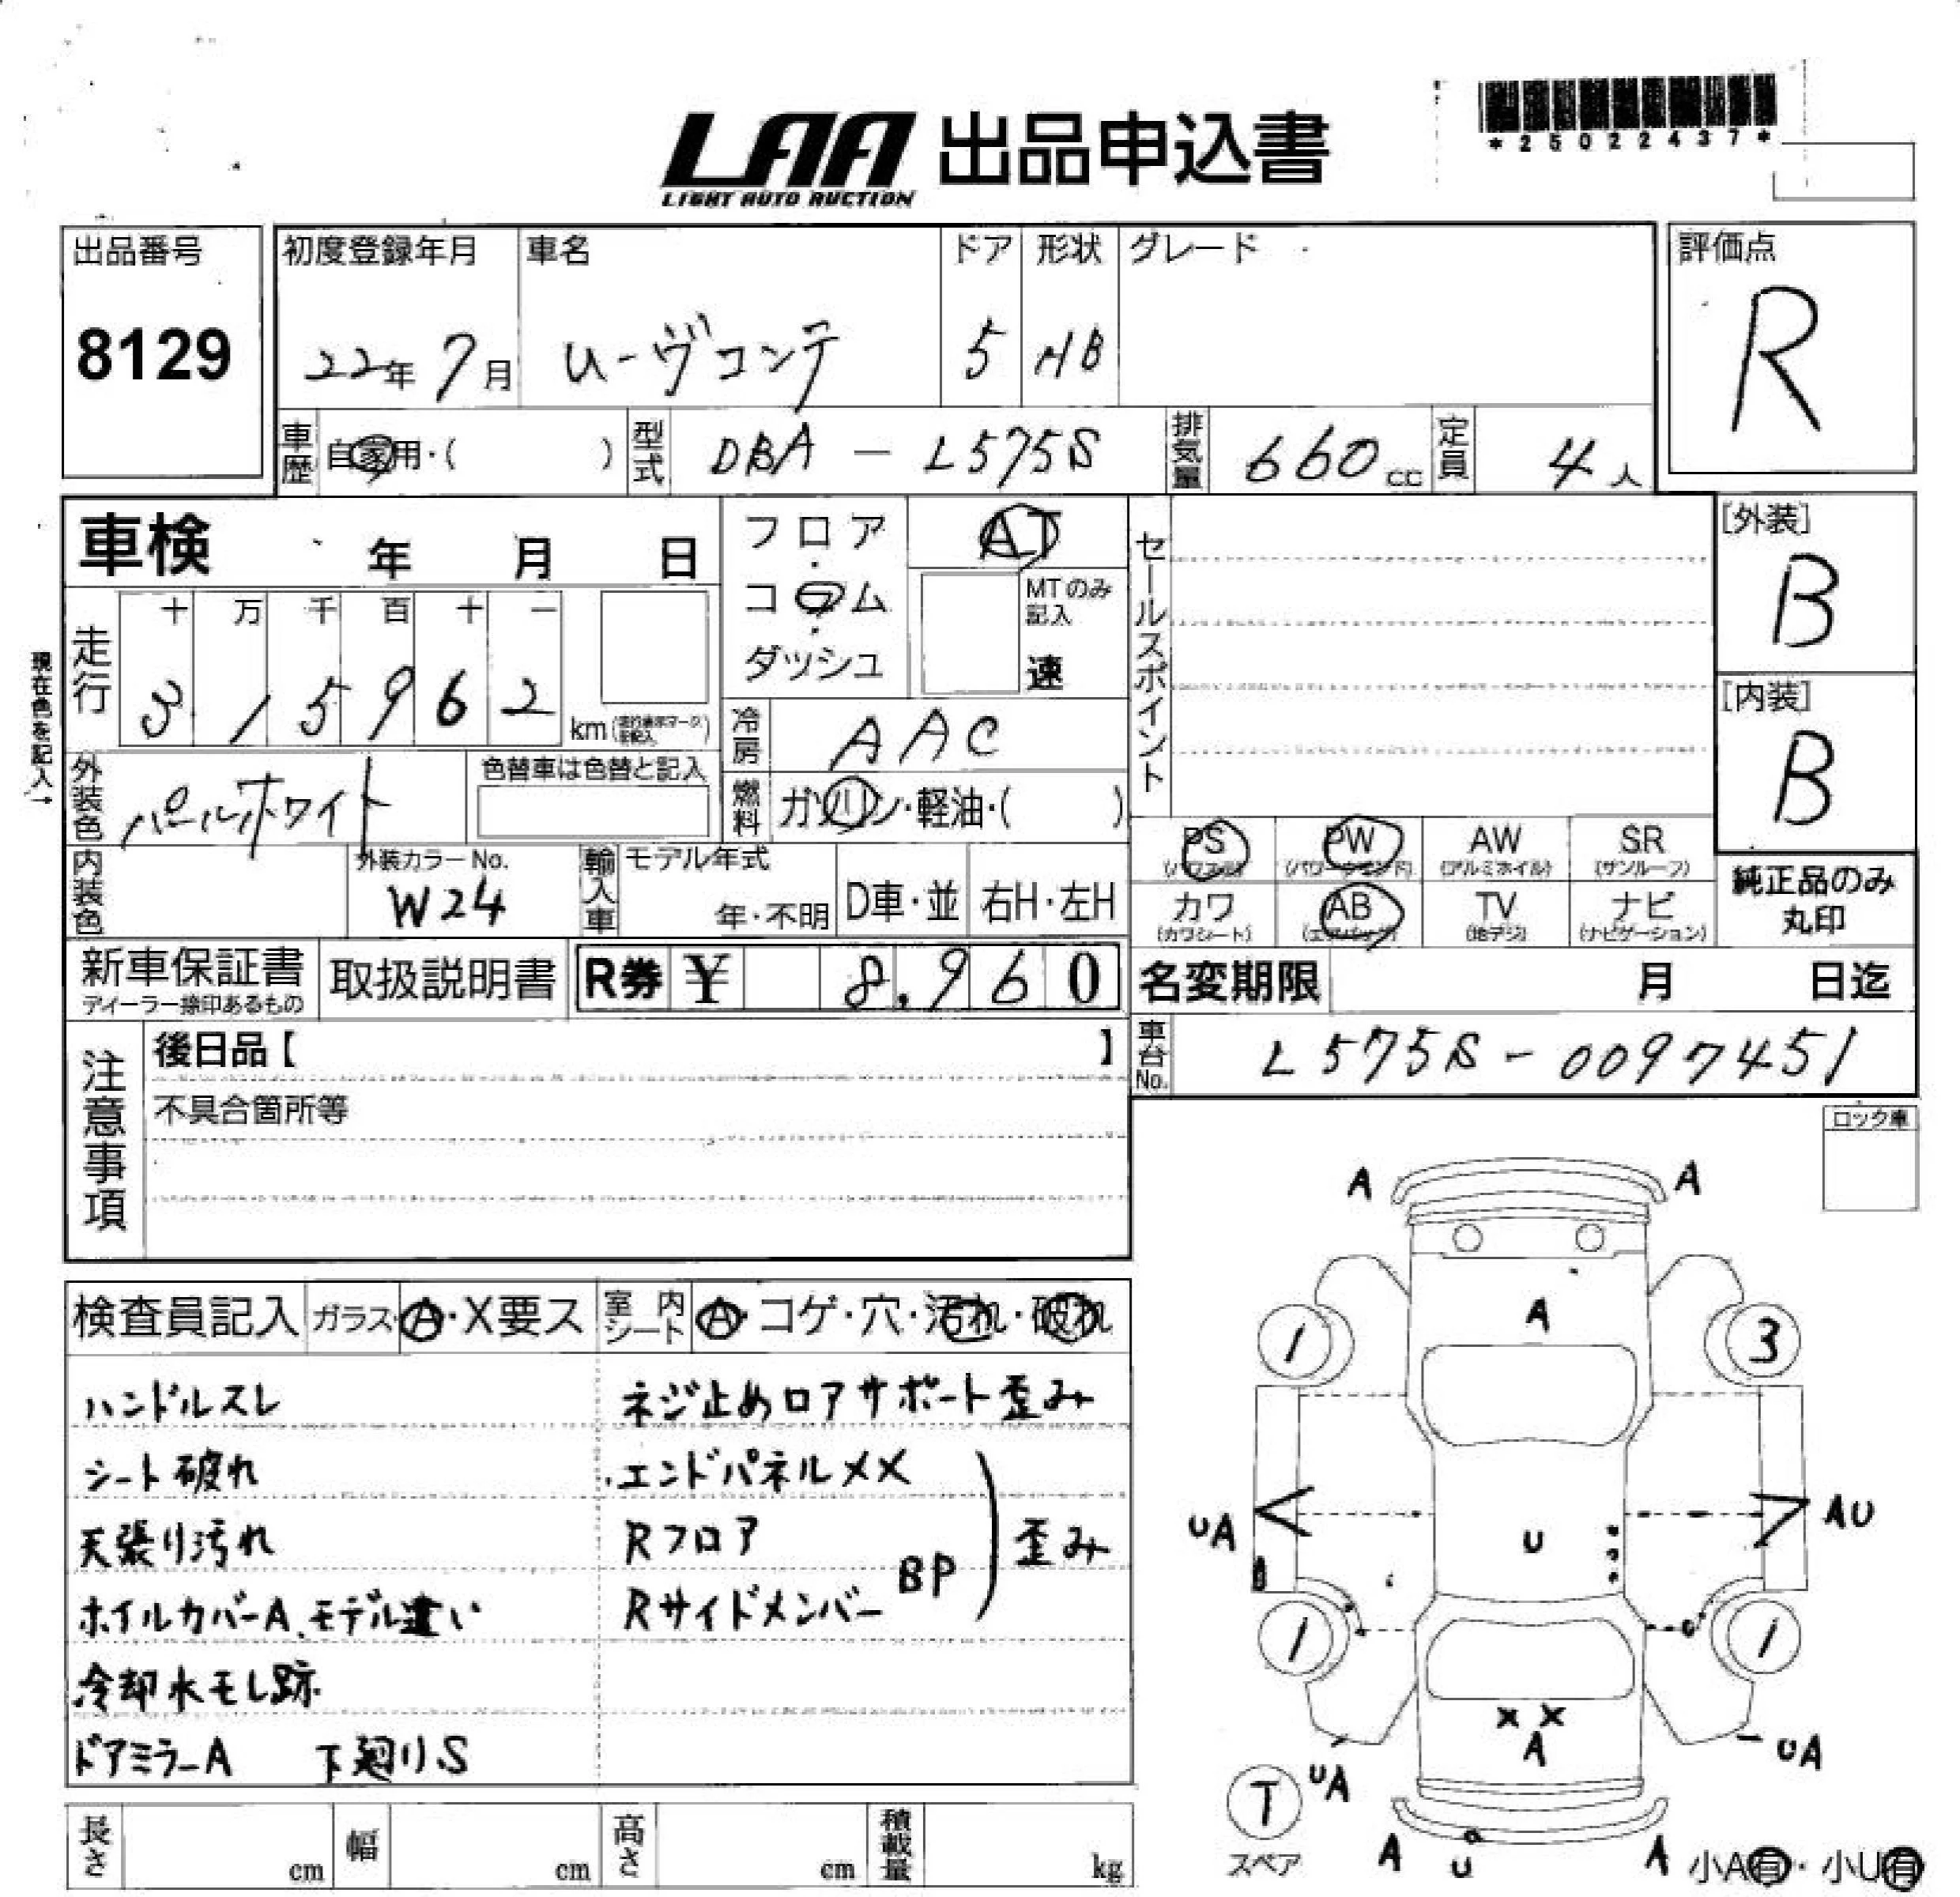 *25022437*
LAA 出品申込書
LIGHT AUTO AUCTION
出品番号
8129
初度登録年月
22年 7月
車名
ムーヴコンテ
ドア
5
形状
HB
グレード
評価点
R
車歴 自家用・( )
型式 DBA - L575S
排気量 660 cc
定員 4 人
車検 年 月 日
フロア・コラム・ダッシュ
AT
MTのみ記入
速
セールスポイント
[外装]
B
[内装]
B
現在色を記入→
走行
十 万 千 百 十 一
3 1 5 9 6 2 km
冷房 AAC
外装色 パールホワイト
色替車は色替と記入
燃料 ガソリン・軽油・( )
内装色
外装カラーNo.
W24
輸入車
モデル年式
年・不明
D車・並
右H・左H
PS
PW
(パワーウインド)
AW
(アルミホイル)
SR
(サンルーフ)
カワ
(カワシート)
AB
(エアバッグ)
TV
(地デジ)
ナビ
(ナビゲーション)
純正品のみ
丸印
新車保証書
ディーラー捺印あるもの
取扱説明書
R券 ¥ 8,960
名変期限 月 日迄
注意事項
後日品【 】
不具合箇所等
車台No. L575S-0097451
ロック車
検査員記入
ガラス・A・X要ス
室内シート
A・コゲ・穴・汚れ・破れ
ハンドルスレ
シート破れ
天張り汚れ
ホイルカバーA、モデル違い
冷却水モレ跡
ドアミラーA 下廻りS
ネジ止めロアサポート歪み
エンドパネルXX
Rフロア
Rサイドメンバー
BP
歪み
A A
A
1 3
UA
U
AU
1 1
XX
A
UA
UA
T
スペア
A U A
小A有・小U有
長さ cm
幅 cm
高さ cm
積載量 kg